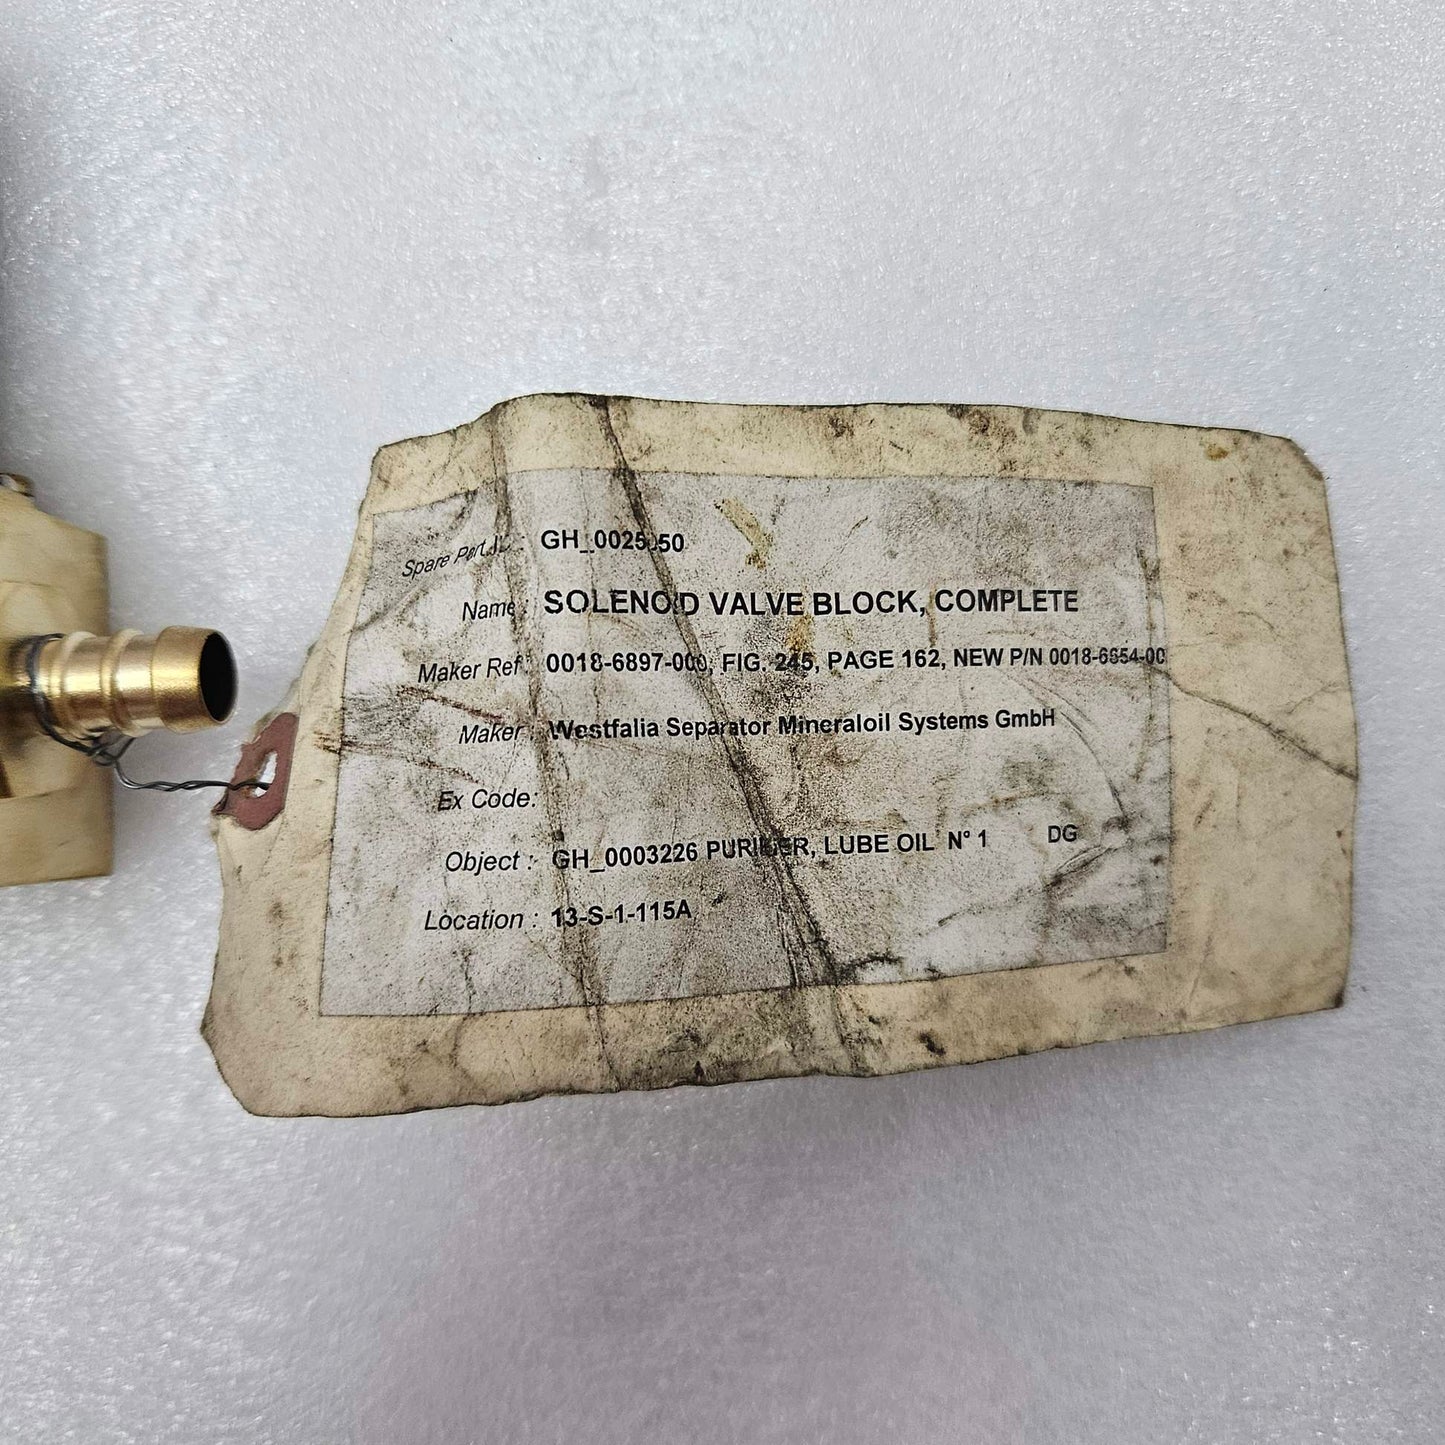 Spare Part :
Name : SOLENOID VALVE BLOCK, COMPLETE
Maker Ref : 0018-6897-000, FIG. 245, PAGE 162, NEW P/N
Maker : Westfalia Separator Mineraloil Systems GmbH
Ex Code:
Object : GH_0003226 PURIFIER, LUBE OIL N° 1 DG
Location : 13-S-1-115A